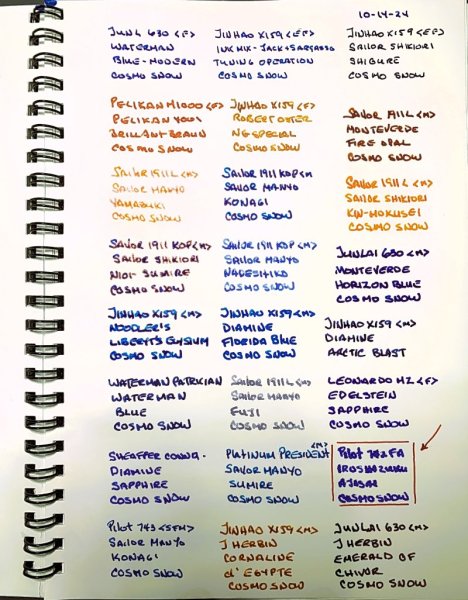 10-14-24
JUNL 630 <F>
WATERMAN
BLUE-MODERN
COSMO SNOW
JINHAO X159 <EF>
INK MIX-JACK+SARGASSO
TUNING OPERATION
COSMO SNOW
JINHAO X159 <EF>
SAILOR SHIKIORI
SHIGURE
COSMO SNOW
PELIKAN M1000 <F>
PELIKAN 4001
BRILLANT BRAUN
COSMO SNOW
JINHAO X159 <F>
ROBERT OSTER
NG SPECIAL
COSMO SNOW
SAILOR 1911L <M>
MONTEVERDE
FIRE OPAL
COSMO SNOW
SAILOR 1911L <M>
SAILOR MANYO
YAMABUKI
COSMO SNOW
SAILOR 1911 KOP <M
SAILOR MANYO
KONAGI
COSMO SNOW
SAILOR 1911 L <M>
SAILOR SHIKIORI
KIN-MOKUSEI
COSMO SNOW
SAILOR 1911 KOP <M>
SAILOR SHIKIORI
NIOI SUMIRE
COSMO SNOW
SAILOR 1911 KOP <M>
SAILOR MANYO
NADESHIKO
COSMO SNOW
JUNLAI 630 <M>
MONTEVERDE
HORIZON BLUE
COSMO SNOW
JINHAO X159 <M>
NOODLER'S
LIBERTY'S ELYSIUM
COSMO SNOW
JINHAO X159 <M>
DIAMINE
FLORIDA BLUE
COSMO SNOW
JINHAO X159 <M>
DIAMINE
ARCTIC BLAST
WATERMAN PATRICIAN
WATERMAN
BLUE
COSMO SNOW
SAILOR 1911L <M>
SAILOR MANYO
FUJI
COSMO SNOW
LEONARDO MZ <F>
EDELSTEIN
SAPPHIRE
COSMO SNOW
SHEAFFER CONNQ.
DIAMINE
SAPPHIRE
COSMO SNOW
PLATINUM PRESIDENT <M>
SAILOR MANYO
SUMIRE
COSMO SNOW
PILOT 742 FA
IROSHIZUKU
AJISAI
COSMO SNOW
PILOT 743 <SFM>
SAILOR MANYO
KONAGI
COSMO SNOW
JINHAO X159 <M>
J HERBIN
CORNALINE
d'EGYPTE
COSMO SNOW
JUNLAI 630 <M>
J HERBIN
EMERALD OF
CHIVOR
COSMO SNOW